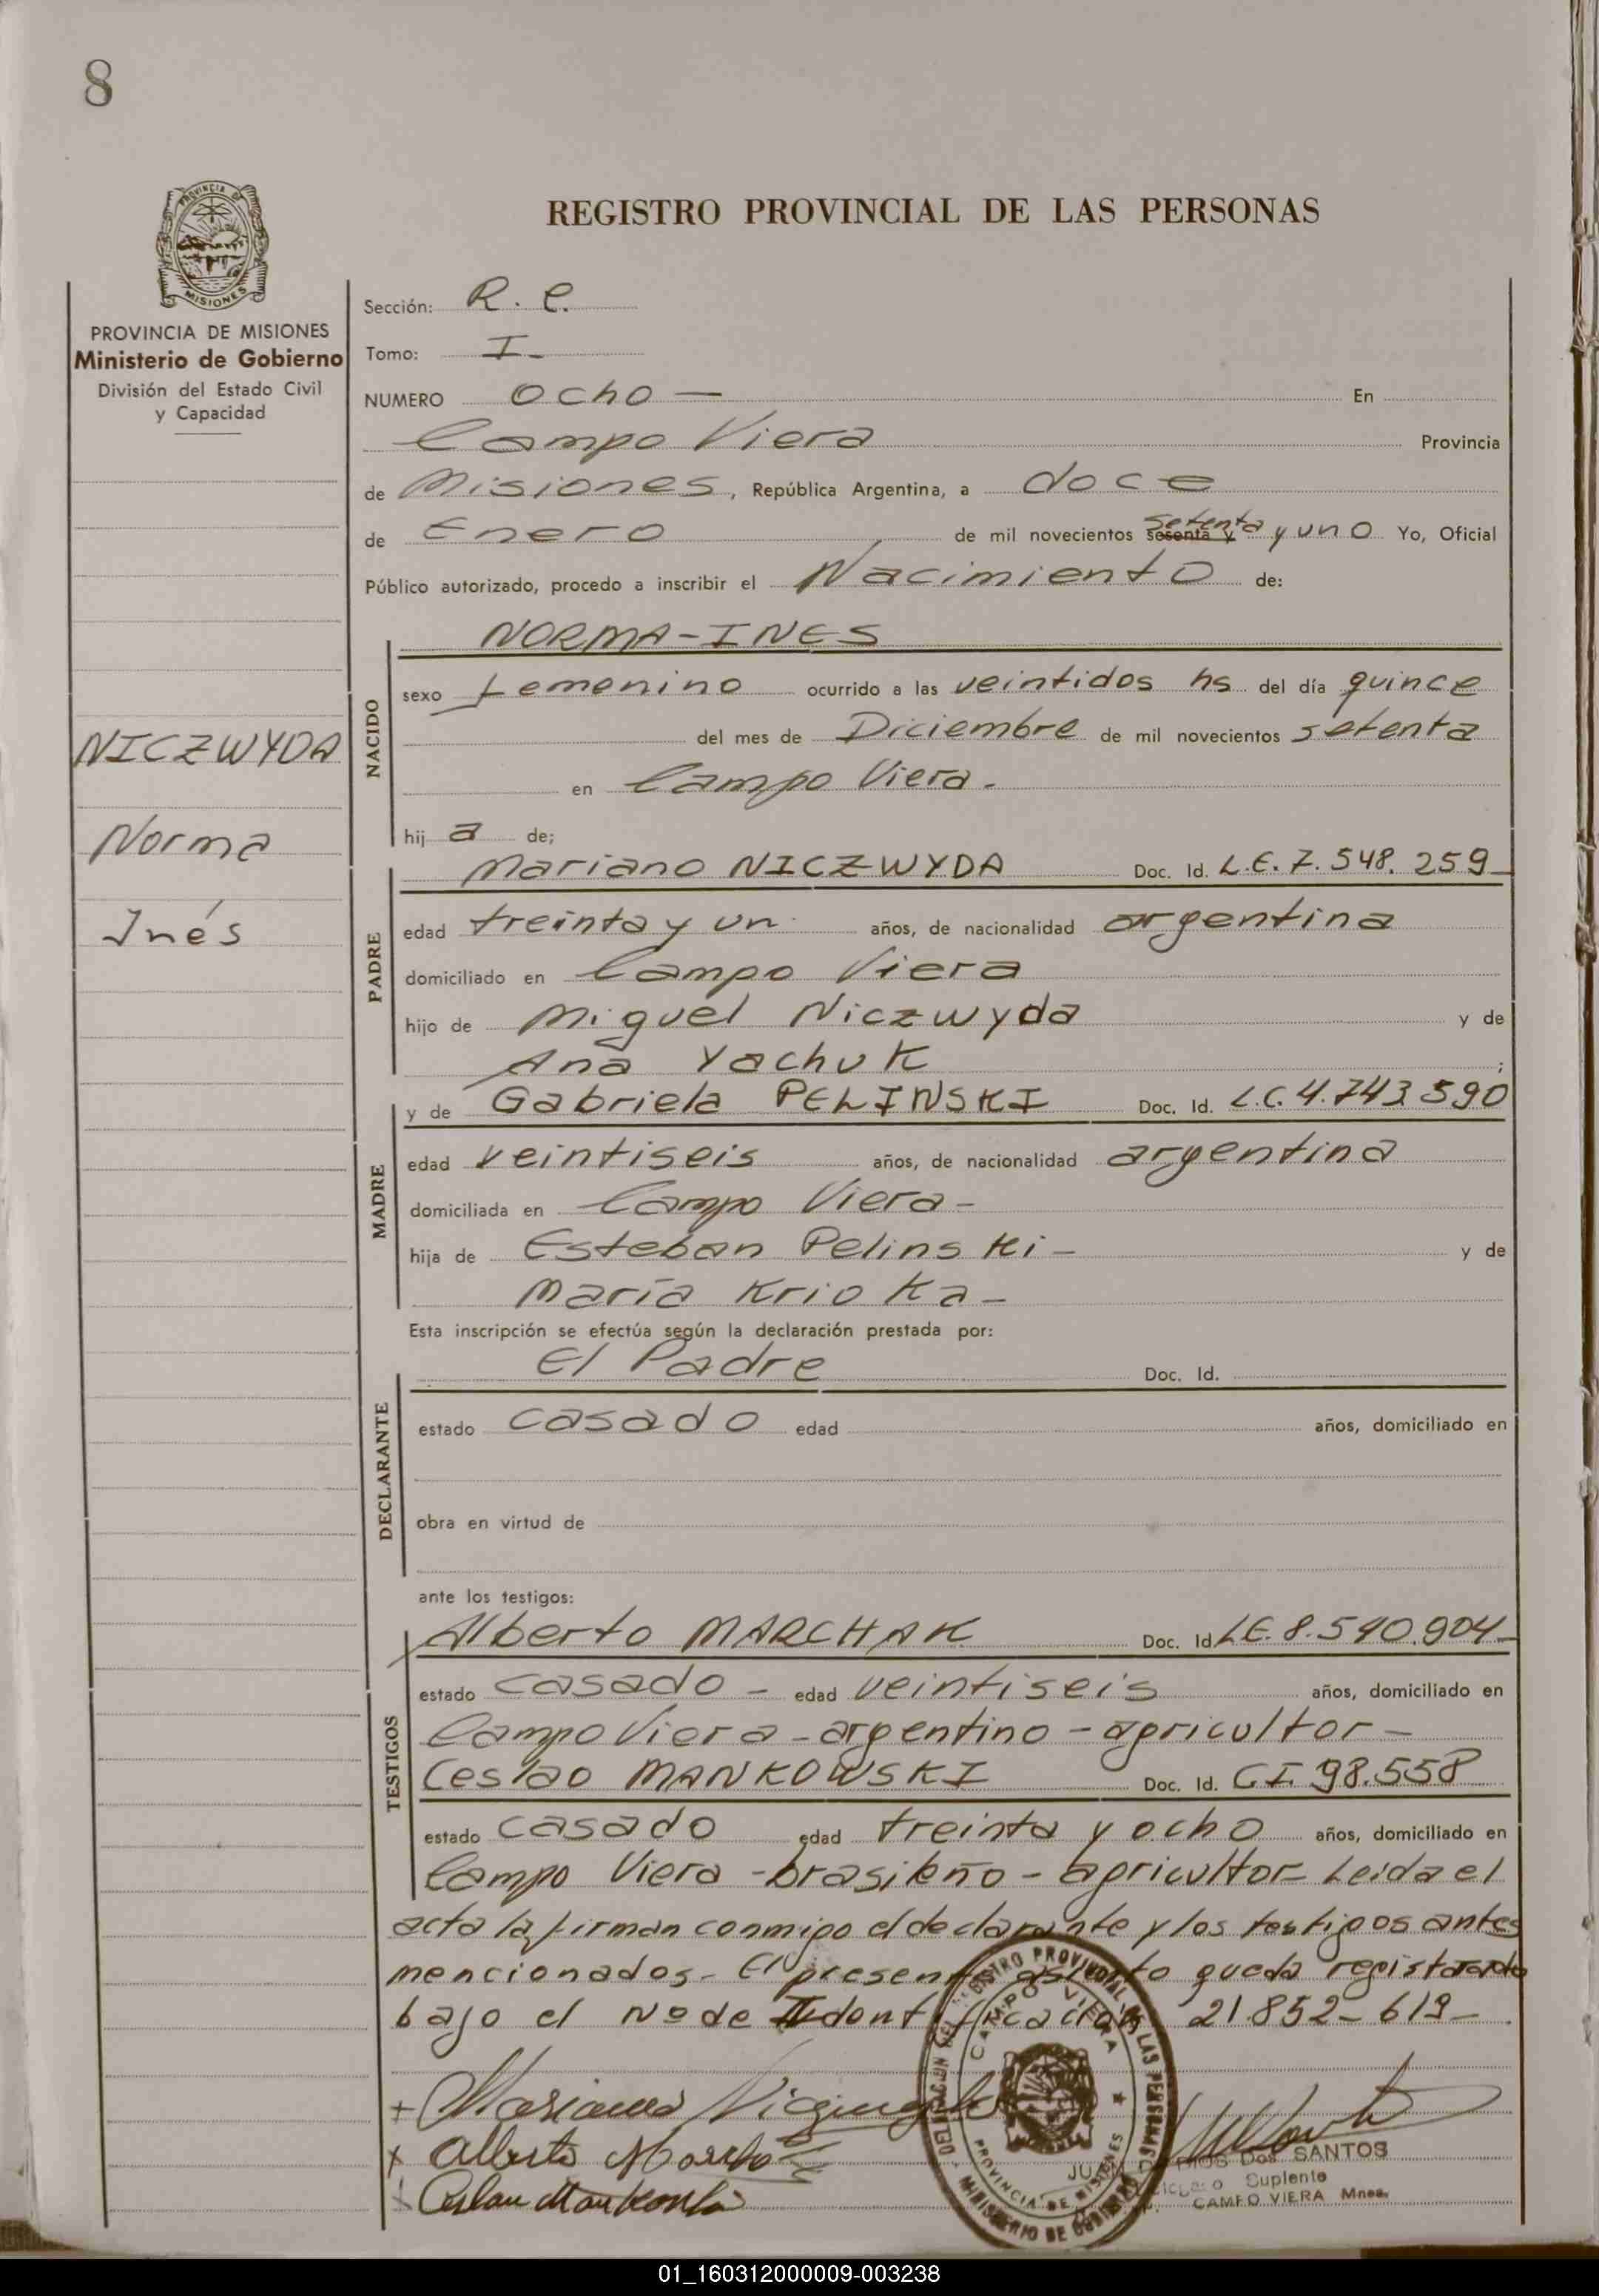 8
PROVINCIA DE
MISIONES
REGISTRO PROVINCIAL DE LAS PERSONAS
PROVINCIA DE MISIONES
Ministerio de Gobierno
División del Estado Civil
y Capacidad
NICZWYDA
Norma
Inés
Sección: R. C.
Tomo: I-
NUMERO ocho — En
Campo Viera Provincia
de Misiones, República Argentina, a doce
de Enero de mil novecientos sesenta y setenta y uno Yo, Oficial
Público autorizado, procedo a inscribir el Nacimiento de:
NACIDO
NORMA-INES
sexo femenino ocurrido a las veintidos hs del día quince
del mes de Diciembre de mil novecientos setenta
en Campo Viera.
hij a de;
PADRE
Mariano NICZWYDA Doc. Id. L.E. 7.548.259-
edad treinta y un años, de nacionalidad argentina
domiciliado en Campo Viera
hijo de Miguel Niczwyda y de
Ana Yachuk ;
MADRE
y de Gabriela PELINSKI Doc. Id. L.C. 4.743.590
edad veintiseis años, de nacionalidad argentina
domiciliada en Campo Viera-
hija de Esteban Pelinski- y de
María Krioka-
Esta inscripción se efectúa según la declaración prestada por:
DECLARANTE
El Padre Doc. Id.
estado casado edad años, domiciliado en
obra en virtud de
ante los testigos:
TESTIGOS
Alberto MARCHAK Doc. Id L.E. 8.540.904-
estado casado - edad veintiseis años, domiciliado en
Campo Viera - argentino - agricultor -
Ceslao MANKOWSKI Doc. Id. C.I. 98.558
estado casado edad treinta y ocho años, domiciliado en
Campo Viera - brasileño - agricultor - Leida el
acta la firman conmigo el declarante y los testigos antes
mencionados. El presente asiento queda registrado
bajo el No de Identificación 21.852-619-
+ Mariano
x Alberto
+
DELEGACION DEL REGISTRO PROVINCIAL DE LAS PERSONAS
CAMPO VIERA
PROVINCIA DE MISIONES
MINISTERIO DE GOBIERNO
DOS SANTOS
Suplente
CAMPO VIERA Mnes.
01_160312000009-003238